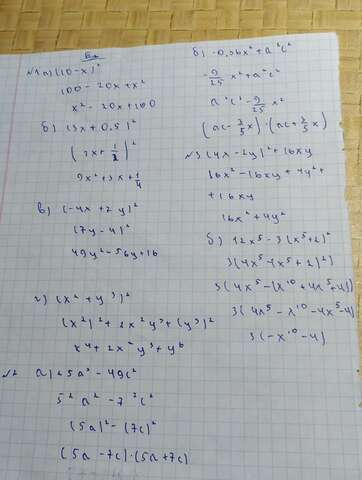 Б2
№1 а) (10-x)²
100-20x+x²
x²-20x+100
б) (3x+0.5)²
(3x+1/2)²
9x²+3x+1/4
в) (-4x+7y)²
(7y-4)²
49y²-56y+16
г) (x²+y³)²
(x²)²+2x²y³+(y³)²
x⁴+2x²y³+y⁶
№2 а) 25a²-49c²
5²a²-7²c²
(5a)²-(7c)²
(5a-7c)·(5a+7c)
б) -0.36x²+a²c²
-9/25x²+a²c²
a²c²-9/25x²
(ac-3/5x)·(ac+3/5x)
№3 (4x-2y)²+16xy
16x²-16xy+4y²+
+16xy
16x²+4y²
б) 12x⁵-3(x⁵+2)²
3(4x⁵-(x⁵+2)²)
3(4x⁵-(x¹⁰+4x⁵+4))
3(4x⁵-x¹⁰-4x⁵-4)
3(-x¹⁰-4)